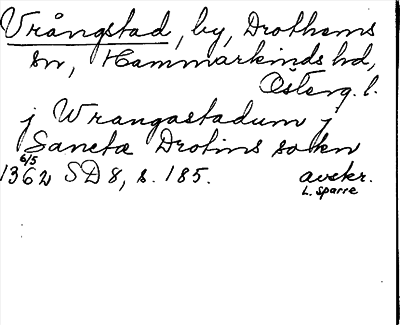 Vrångstad, by, Drothems
sn, Hammarkinds hd,
Österg. l.
j Wrangastadum j
Sancta Drotins sokn
6/5
1362 SD 8, s. 185. avskr.
L. Sparre